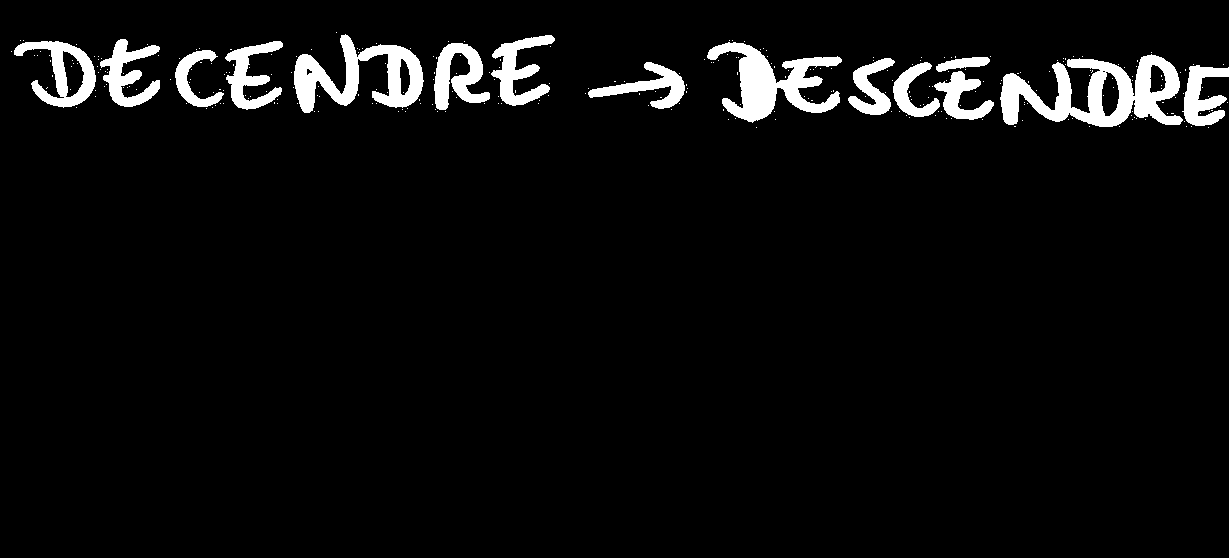 DECENDRE → DESCENDRE